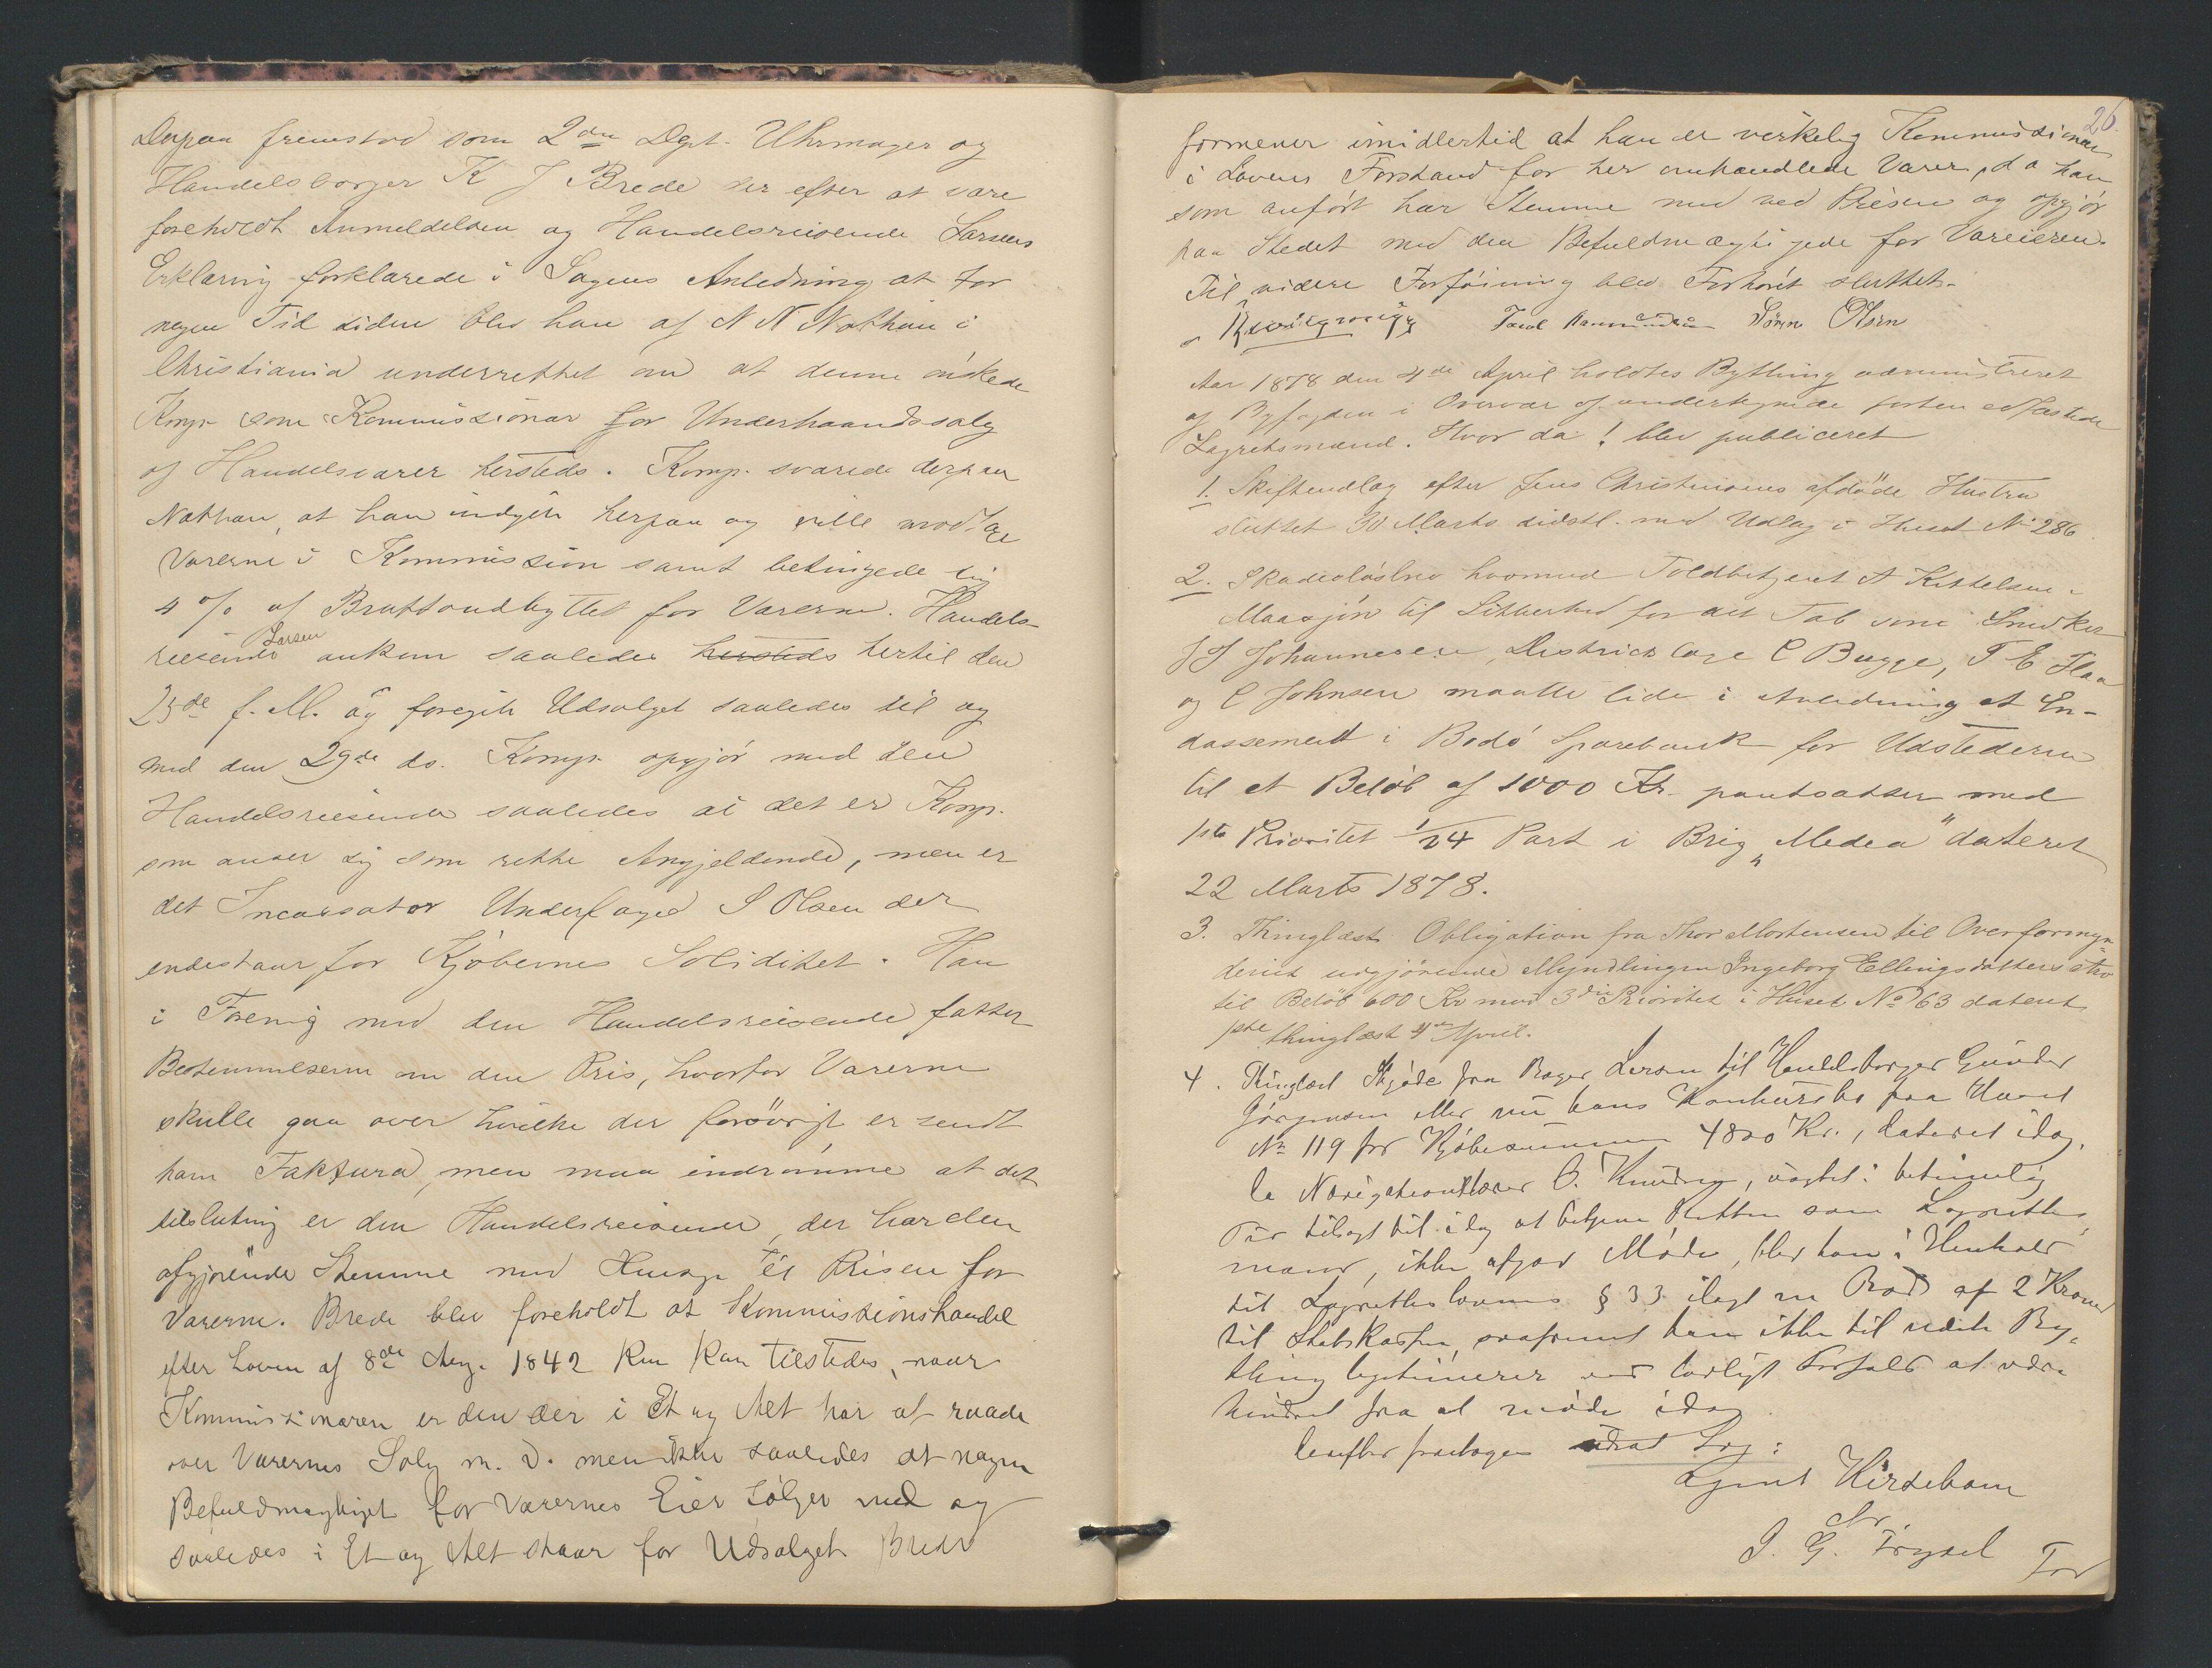 Derpaa fremstod som 2den Dept. Uhrmager og
Handelsborger K J Brede der efter at være
foreholdt Anmeldelsen og Handelsreisende Larsens
Erklæring forklarede i Sagens Anledning at for
nogen Tid siden blev han af N N Nathan i
Christiania underrettet om at denne ønskede
Komp. som Kommissionær for Underhaandssalg
af Handelsvarer hersteds. Komp. svarede derpaa
Nathan, at han indgik herpaa og ville modtage
Varerne i Kommission samt betingede sig
4 % af Bruttoudbyttet for Varerne. Handels-
reisende Larsen ankom saaledes hersteds hertil den
25de f. M. og foregik Udsalget saaledes til og
med den 29de ds. Komp. opgjør med den
Handelsreisende saaledes at det er Komp.
som anser sig som rette Angjeldende, men er
det Incassator Underfoged S Olsen der
indestaar for Kjøbernes Soliditet. Han
i Forening med den Handelsreisende fatter
Bestemmelserne om den Pris, hvorfor Varerne
skulle gaa over hvilke der forøvrigt er sendt
ham Faktura, men maa indrømme at det
tilslutning er den Handelsreisende, der har den
afgjørende Stemme med Hensyn til Prisen for
Varerne. Brede blev foreholdt at Kommissionshandel
efter Loven af 8de Aug. 1842 kun kan tilstedes, naar
Kommissionæren er den der i Et og Alt har at raade
over Varernes Salg m. V. men ikke saaledes at nogen
Befuldmægtiget for Varernes Eier sælger med og
saaledes i Et og Alt staar for Udsalget Brede
26.
formener imidlertid at han er virkelig Kommissionær
i Lovens Forstand for her omhandlede Varer, da han
som anført har Stemme med ved Prisen og opgjør
paa Stedet med den Befuldmægtigede for Vareieren.
Til videre Forføining blev Forhøret sluttet.
Søren Olsen
Aar 1878 den 4de April holdtes Bything administreret
af Byfogden i Overvær af undertegnede forhen edfæstede
Lagretsmænd. Hvor da! blev publiceret
1. Skifteudlæg efter Jens Christensens afdøde Hustru
sluttet 30 Marts sidstl. med Udlæg i Huset No 286
2. Skadesløsbrev hvormed Toldbetjent A Kittelsen i
Maasjøn til Sikkerhed for det Tab som Snedker
J J Johannesen, Districtslæge C Bugge, T E Haa
og C Johnsen maatte lide i Anledning at En-
dossement i Bodø Sparebank for Udstederen
til et Beløb af 1000 Kr. pantsætter med
1ste Prioritet 1/24 Part i Brig „Medea" dateret
22 Marts 1878.
3. Thinglæst Obligation fra Thor Mortensen til Overformyn-
deriet udgjørende Myndlingen Ingeborg Ellingsdatters Arv
til Beløb 600 Kr mod 3die Prioritet i Huset No 63 dateret
1ste thinglæst 4de April.
4. Thinglæst Skjøde fra Roger Larsen til Handelsborger Gunder
Jørgensen eller nu hans Konkursbo paa Huset
No 119 for Kjøbesummen 4800 Kr., dateret idag.
Da Navigationslærer O. Knudsen, uagtet i betimelig
Tid tilsagt til idag at betjene Retten som Lagrettes-
mand, ikke afgav Møde, blev han i Henhold
til Lagrettesloven § 33 ilagt en Bod af 2 Kroner
til Statskassen, saafremt han ikke til næste By-
thing legitimerer ved lovligt Forfald at være
hindret fra at møde idag.
Derefter foretoges
J. G. Trysel
For